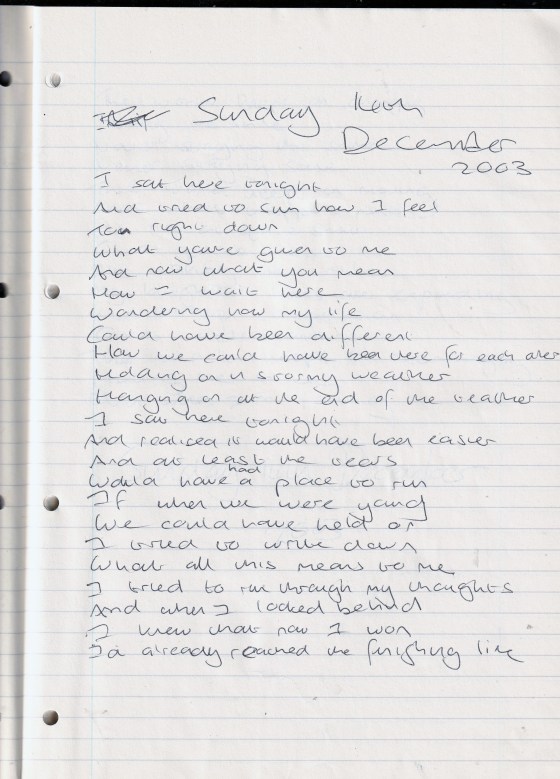 Sunday
December
2003
I sat here tonight
And tried to sum how I feel
right down
What you've given to me
And now what you mean
How I wait here
Wondering how my life
Could have been different
How we could have been there for each other
Holding on in stormy weather
Hanging on at the end of the teather
I sat here tonight
And realised it would have been easier
And at least the tears
Would have had a place to run
If when we were young
We could have held on
I tried to write down
What all this means to me
I tried to run through my thoughts
And when I looked behind
I knew that now I won
I'd already reached the finishing line